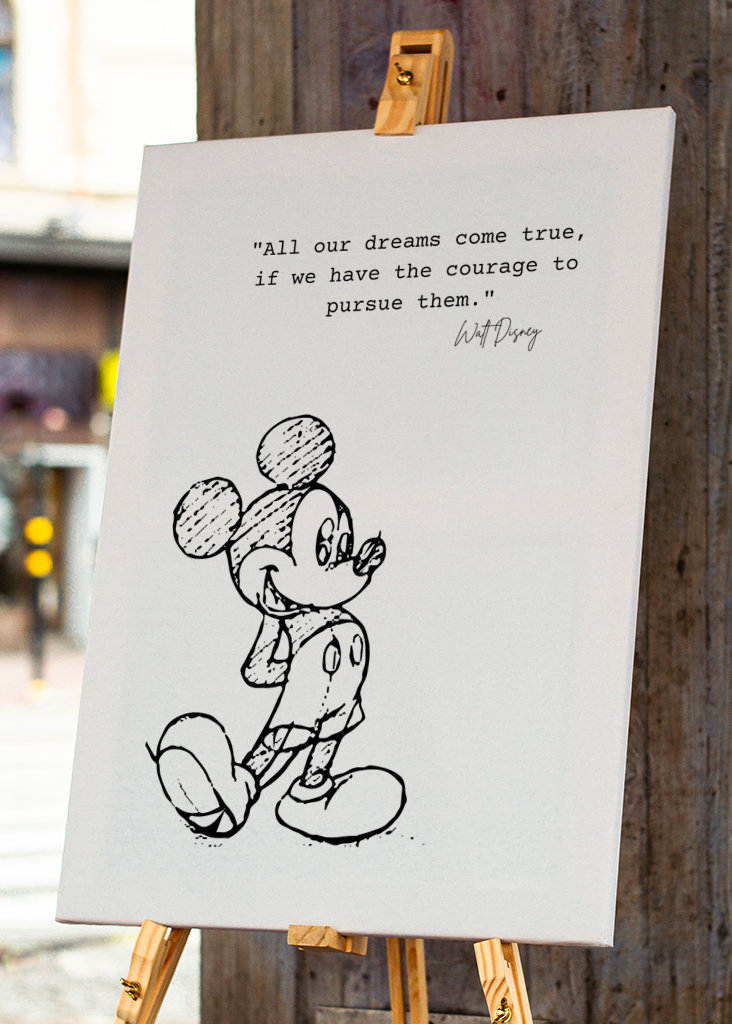 "All our dreams come true,
if we have the courage to
pursue them."
Walt Disney